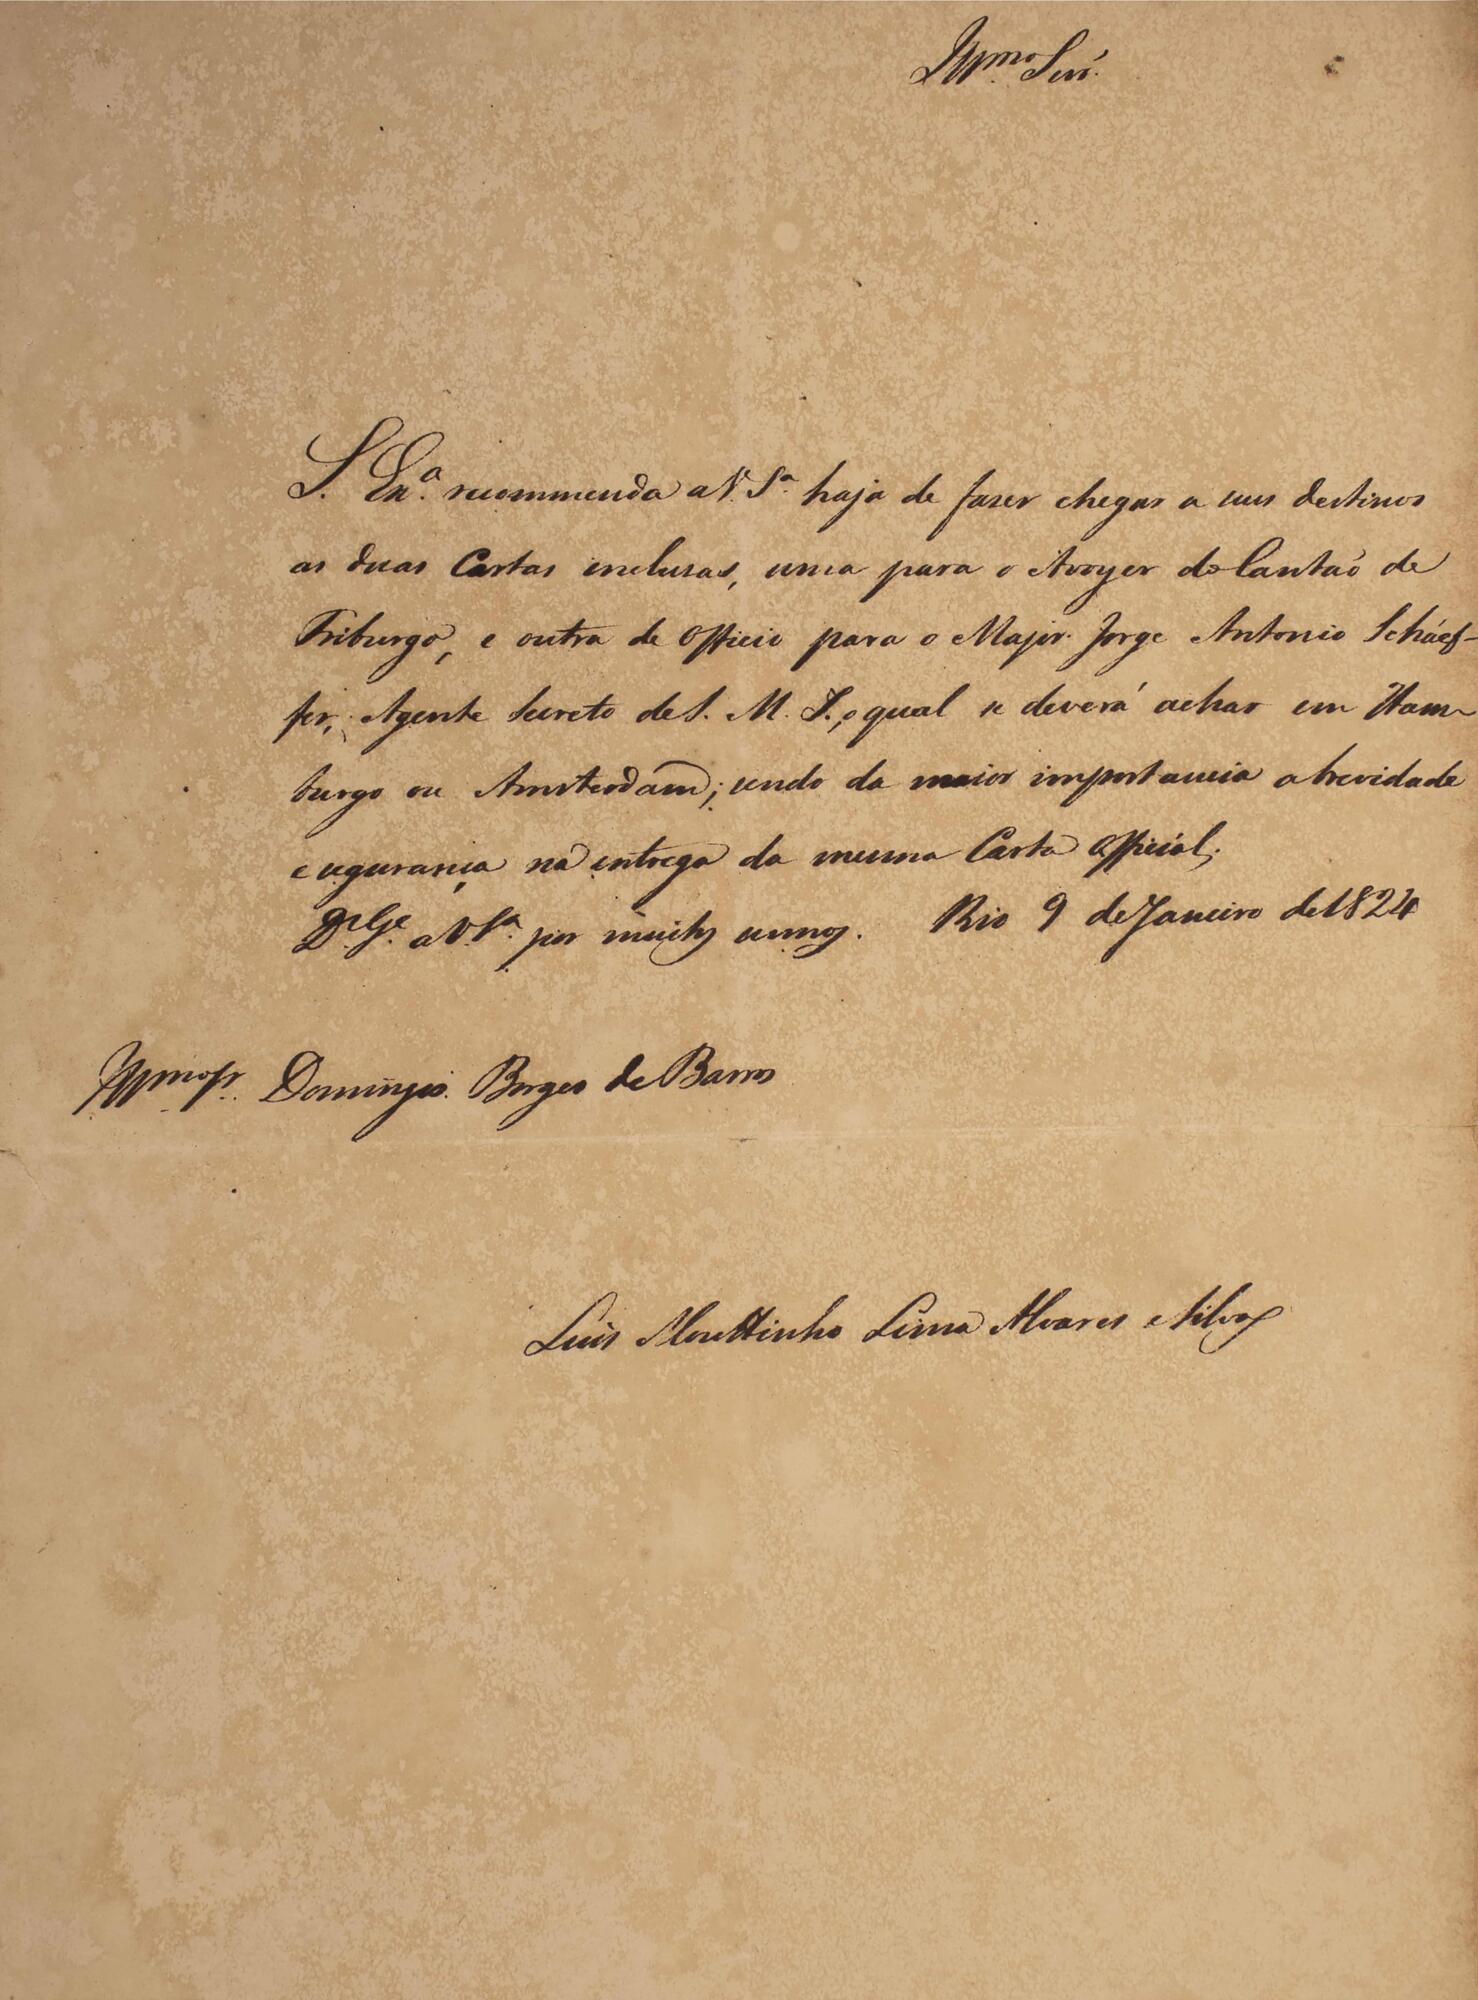 Illmo Senr.
S. Exa. recommenda a V. Sa. haja de fazer chegar a seus destinos
as duas Cartas inclusas, uma para o Avoyer do Cantaõ de
Friburgo, e outra de Officio para o Major Jorge Antonio Scháef-
fer, Agente Secreto de S. M. I., o qual se deverá achar em Ham-
burgo ou Amsterdam; sendo da maior importancia a brevidade
e segurança na entrega da mesma Carta Official.
Ds. Ge. a V. Sa. por muitos annos. Rio 9 de Janeiro de 1824
Illmo Sr. Domingos Borges de Barros
Luis Mouttinho Lima Alvares e Silva